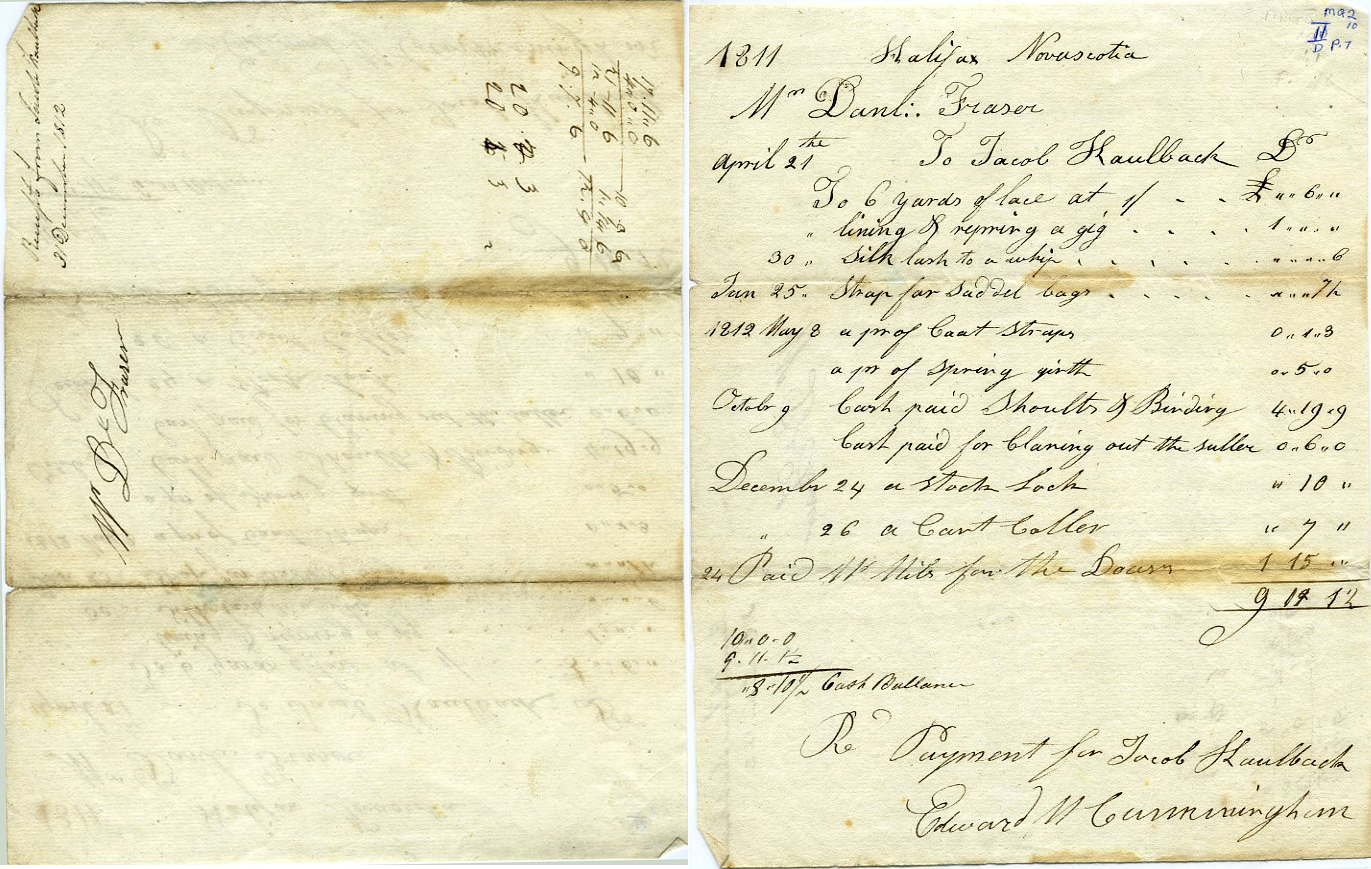 Receipt from Jacob Kaulback
31 December 1812
17 11 6
4 0 0
21 11 6
12 4 0
9 7 6
10 9 6
1 14 6
12 8 0
20 3
20 3
Mr D Fraser
MG2
10
II
D P.7
1811 Halifax Novascotia
Mr Danl:. Fraser
April 21 the To Jacob Kaulback Dr
To 6 yards of lace at 1/ - - £ " 6 "
" lining & repring a gig . . . . 1 " " "
30 " Silk lash to a whip . . . . " " " 6
Jan 25 " Strap for Saddel bags . . . . " " 7½
1812 May 8 a pr of Coat Straps 0 " 1 " 3
a pr of Spring girth 0 " 5 " 0
Octobr 9 Cash paid Shoults & Birding 4 " 19 " 9
Cash paid for Claning out the suller 0 " 6 " 0
Decembr 24 a Stock Lock " 10 "
" 26 a Cart Coller " 7 "
24 Paid Mr for the 1 15 "
9 11 1½
10 " 0 - 0
9 - 11 - 1½
" 8 - 10½ Cash Ballance
Red Payment for Jacob Kaulback
Edward W Cunningham